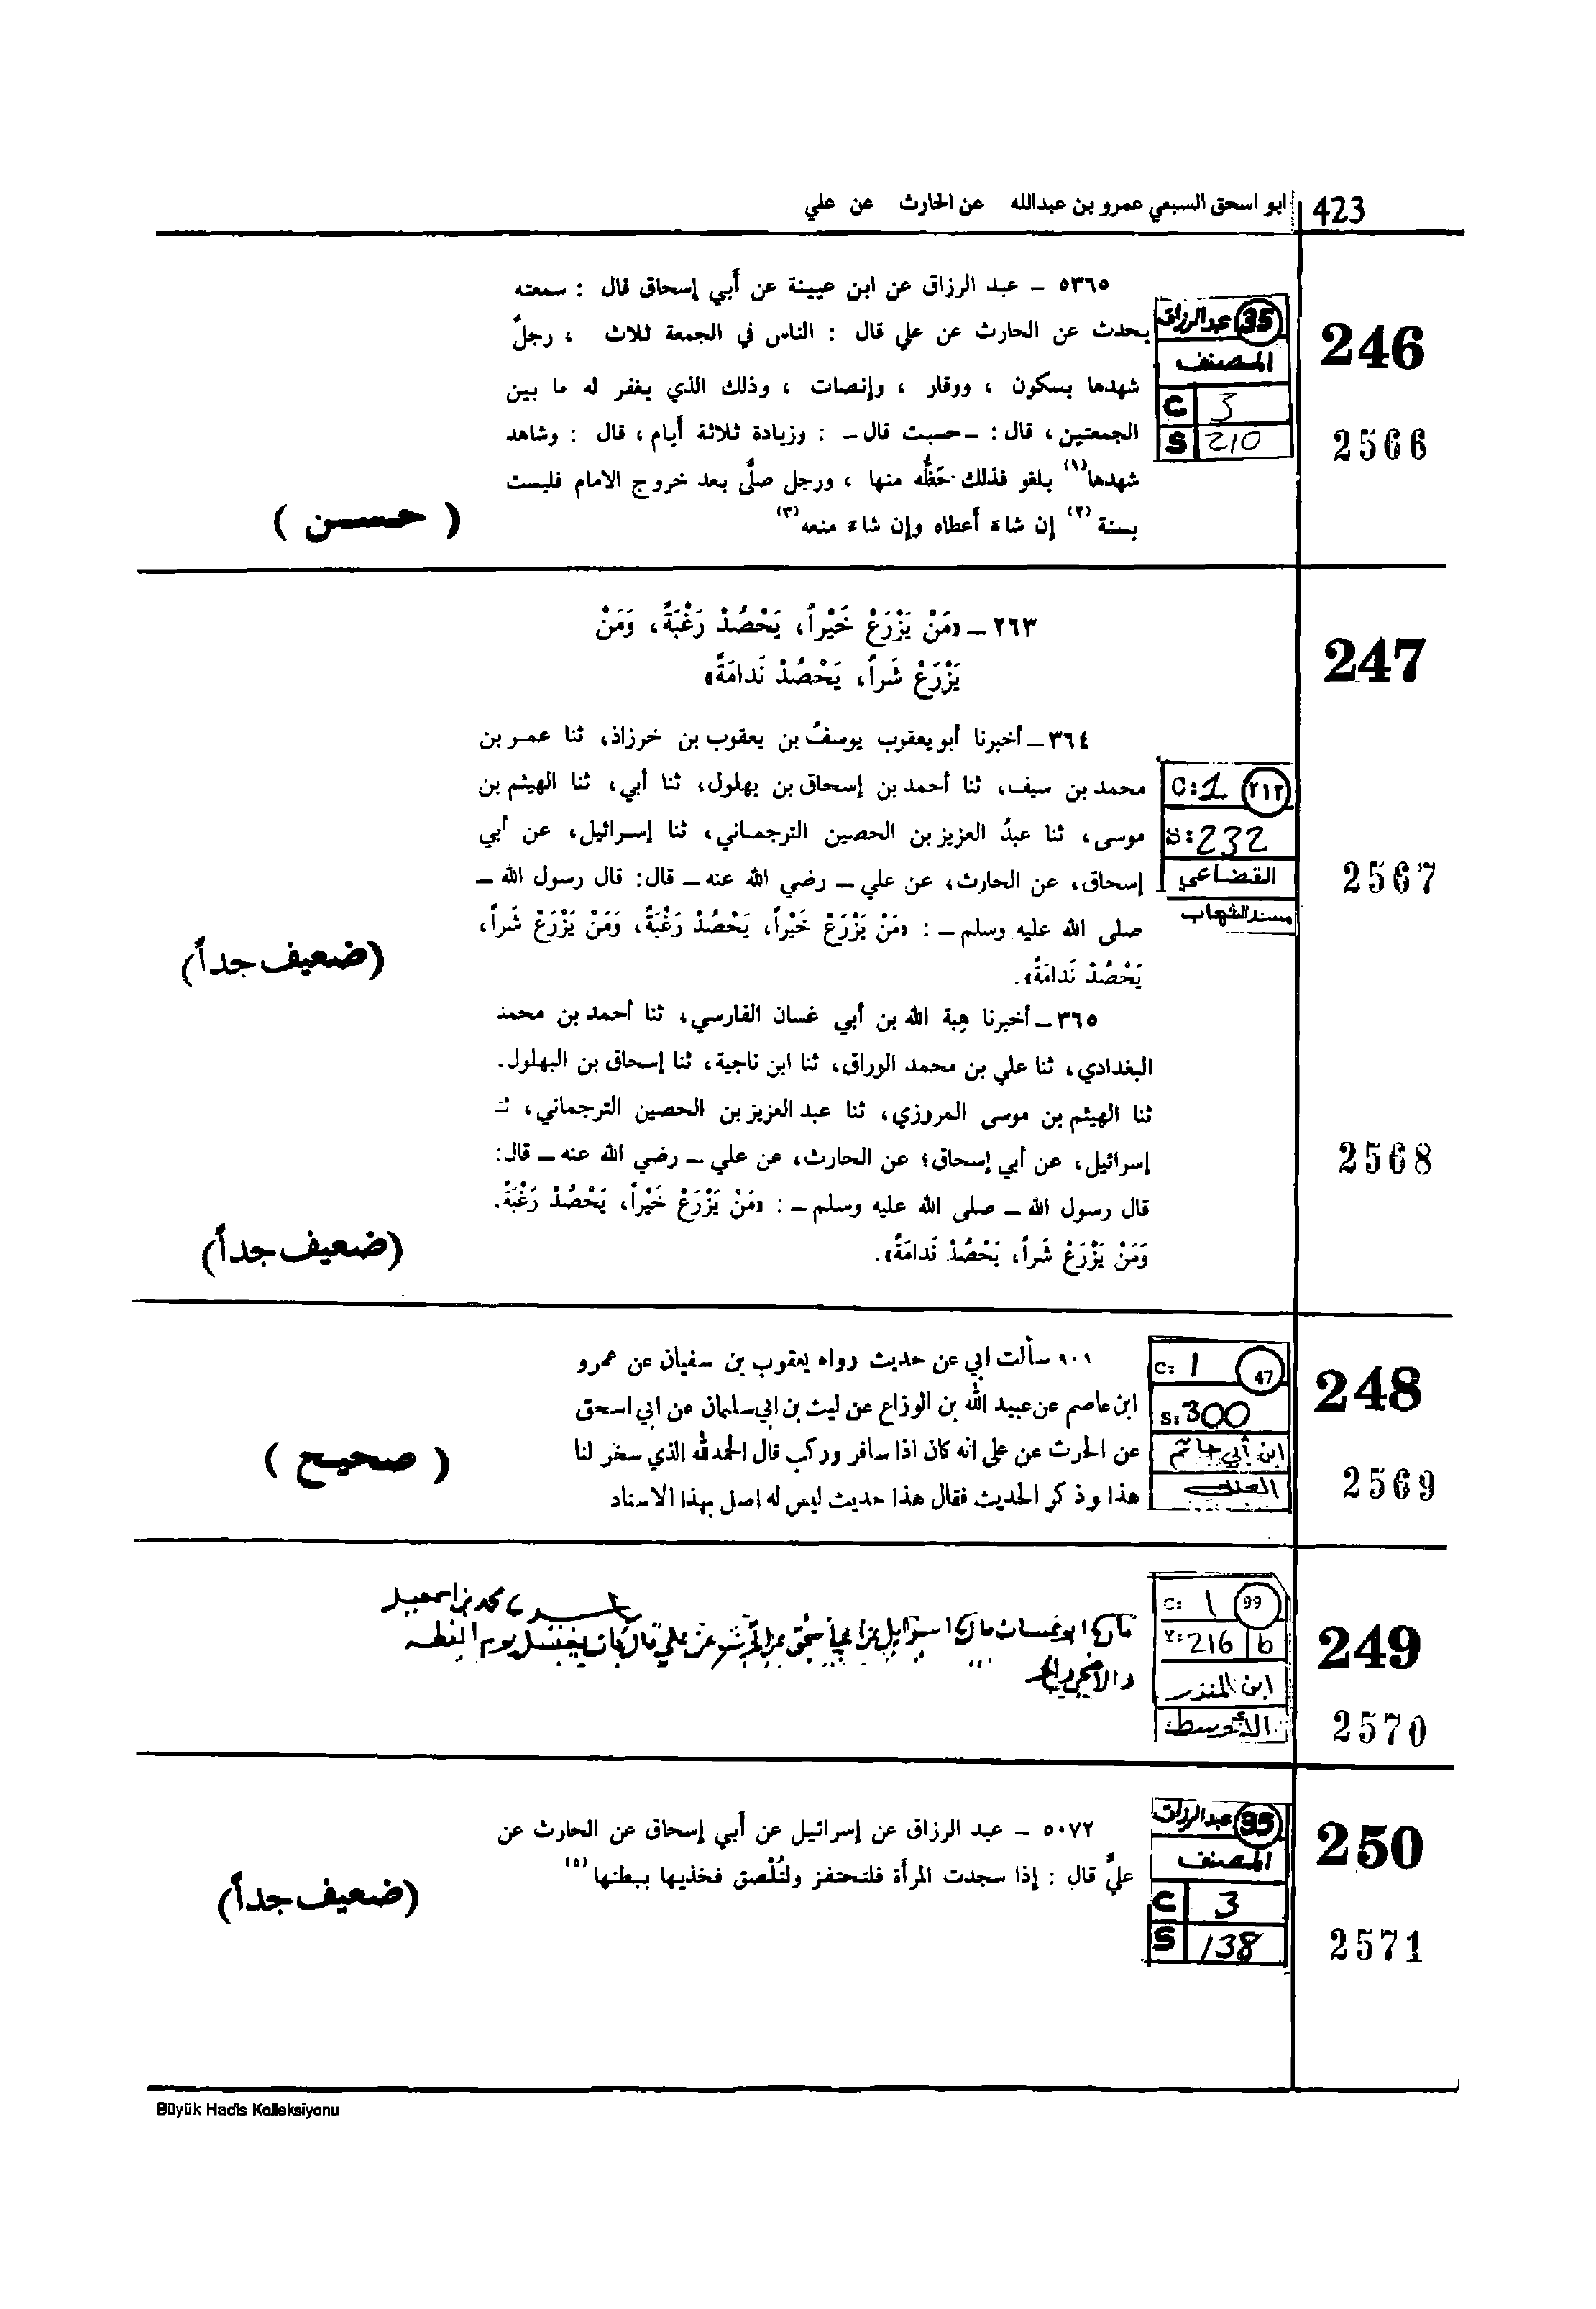 423
ابو اسحق السبعي عمرو بن عبدالله عن الحارث عن علي
246
2566
35 عبد الرزاق
المصنف
C 3
S 210
٥٣٦٥ – عبد الرزاق عن ابن عيينة عن أبي إسحاق قال : سمعته
يحدث عن الحارث عن علي قال : الناس في الجمعة ثلاث ، رجلٌ
شهدها بسكون ، ووقار ، وإنصات ، وذلك الذي يغفر له ما بين
الجمعتين ، قال : –حسبت قال– : وزيادة ثلاثة أيام ، قال : وشاهد
شهدها(١) بلغو فذلك حَظُّه منها ، ورجل صلَّى بعد خروج الامام فليست
بسنة (٢) إن شاءَ أعطاه وإن شاءَ منعه(٣)
( حسن )
247
٢٦٣ – «مَنْ يَزْرَعْ خَيْراً، يَحْصُدْ رَغْبَةً، وَمَنْ
يَزْرَعْ شَراً، يَحْصُدْ نَدامَةً»
2567
C:1 ٢١٢
S:232
القضاعي
مسند الشهاب
٣٦٤ – أخبرنا أبو يعقوب يوسفُ بن يعقوب بن خرزاذ، ثنا عمر بن
محمد بن سيف، ثنا أحمد بن إسحاق بن بهلول، ثنا أبي، ثنا الهيثم بن
موسى، ثنا عبدُ العزيز بن الحصين الترجماني، ثنا إسرائيل، عن أبي
إسحاق، عن الحارث، عن علي – رضي الله عنه – قال: قال رسول الله –
صلى الله عليه وسلم – : «مَنْ يَزْرَعْ خَيْراً، يَحْصُدْ رَغْبَةً، وَمَنْ يَزْرَعْ شَراً،
يَحْصُدْ نَدامَةً».
(ضعيف جداً)
2568
٣٦٥ – أخبرنا هِبة الله بن أبي غسان الفارسي، ثنا أحمد بن محمد
البغدادي، ثنا علي بن محمد الوراق، ثنا ابن ناجية، ثنا إسحاق بن البهلول.
ثنا الهيثم بن موسى المروزي، ثنا عبد العزيز بن الحصين الترجماني، ثـ
إسرائيل، عن أبي إسحاق؛ عن الحارث، عن علي – رضي الله عنه – قال:
قال رسول الله – صلى الله عليه وسلم – : «مَنْ يَزْرَعْ خَيْراً، يَحْصُدْ رَغْبَةً.
وَمَنْ يَزْرَعْ شَراً، يَحْصُدْ نَدامَةً».
(ضعيف جداً)
248
2569
C: 1 47
S:300
ابن أبي حاتم
العلل
٩٠١ سألت ابي عن حديث رواه يعقوب بن سفيان عن عمرو
ابن عاصم عن عبيد الله بن الوزاع عن ليث بن ابي سليمان عن ابي اسحق
عن الحرث عن على انه كان اذا سافر وركب قال الحمد لله الذي سخر لنا
هذا وذكر الحديث فقال هذا حديث ليس له اصل بهذا الاسناد
( صحيح )
249
2570
C: 1 99
Y: 216 b
ابن المنذر
الأوسط
محمد بن اسمعيل
ابو غسان قال اسرائيل عن ابي اسحق عن الحرث عن علي قال كان يغتسل يوم الفطر
250
2571
35 عبد الرزاق
المصنف
C 3
S 138
٥٠٧٢ – عبد الرزاق عن إسرائيل عن أبي إسحاق عن الحارث عن
عليّ قال : إذا سجدت المرأة فلتحتفز ولتُلْصق فخذيها ببطنها(٥)
(ضعيف جداً)
Büyük Hadis Kolleksiyonu